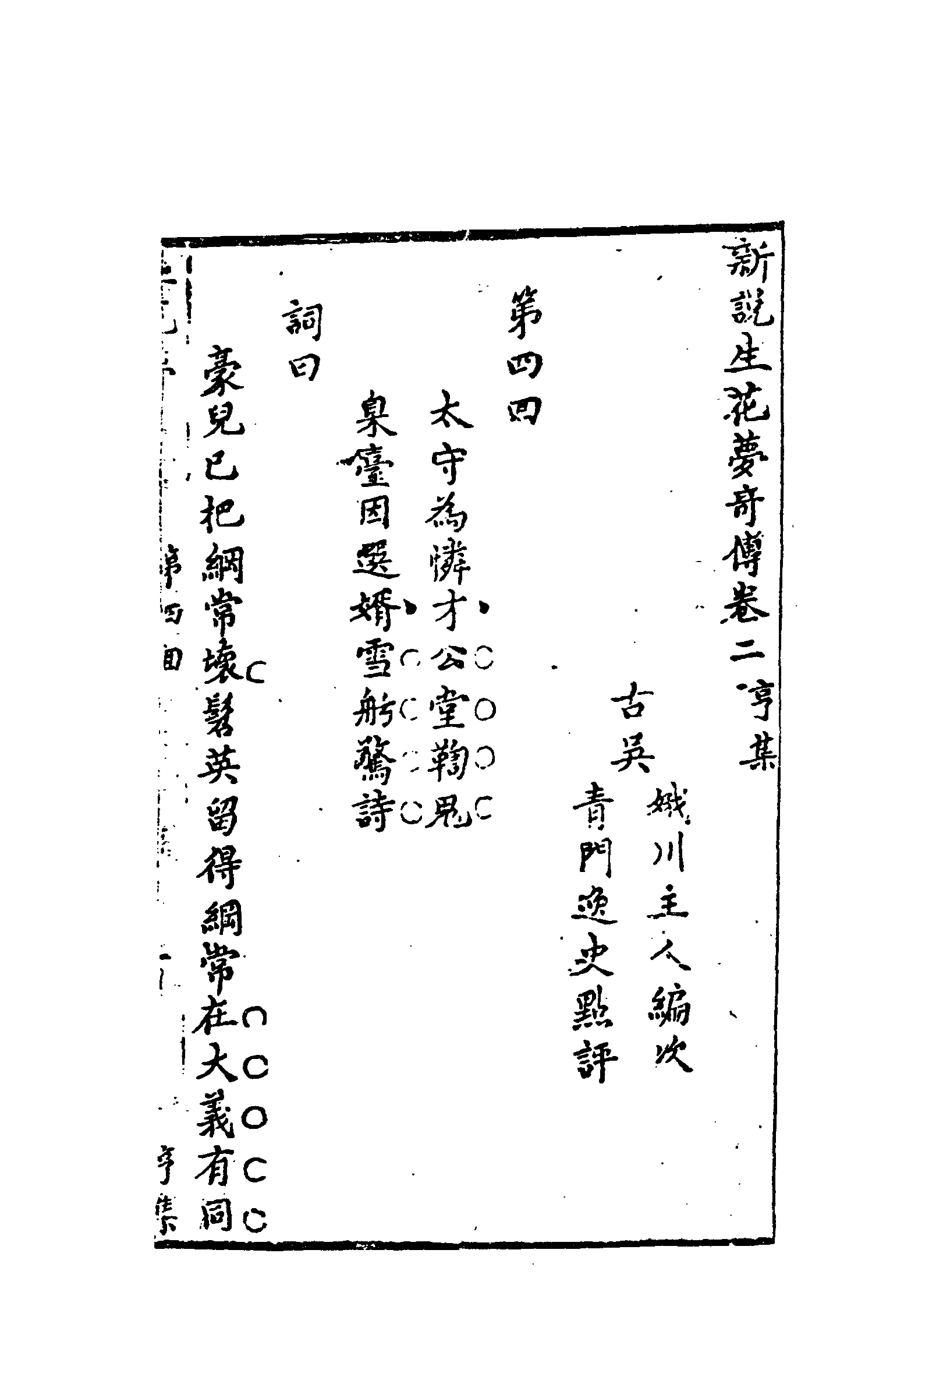 新說生花夢奇傳卷二 亨集
古吳
娥川主人編次
青門逸史點評
第四回
太守為憐才公堂鞫鬼
臬臺因選婿雪舫驚詩
詞曰
豪兒已把綱常壞髫英留得綱常在大義有同
第四回
亨集